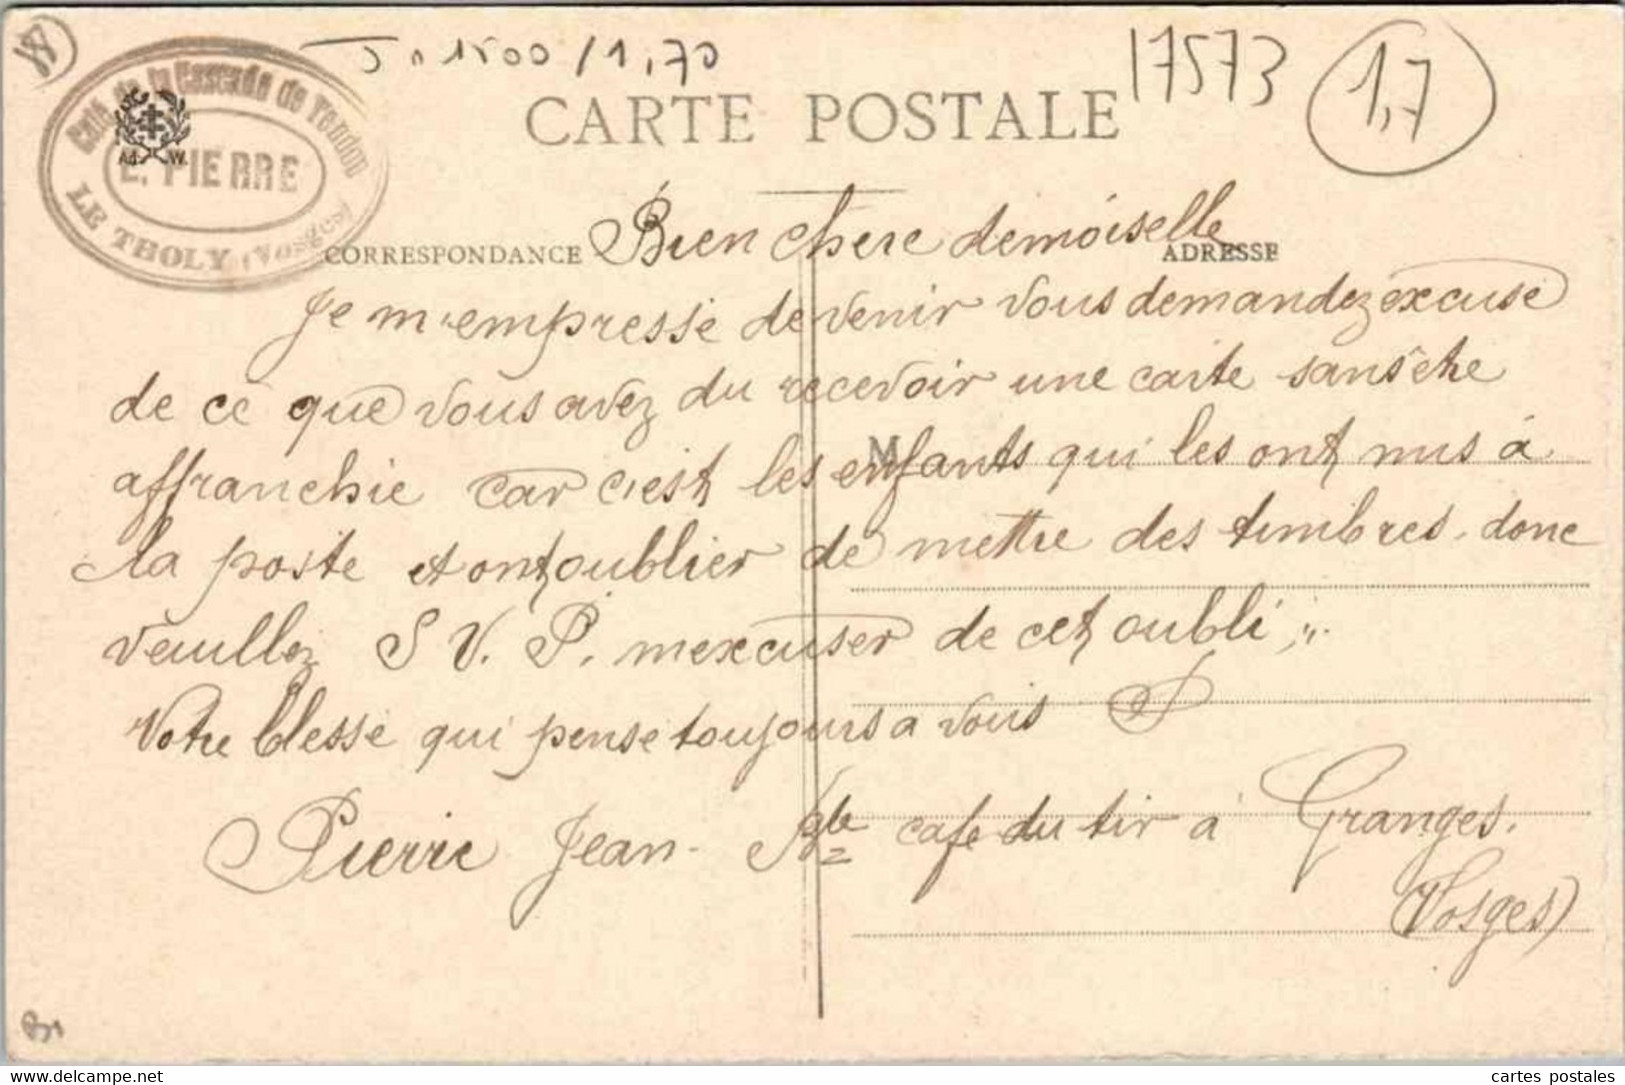 J. 1500 / 1,70
17573
1,7
CARTE POSTALE
Café de la Cascade de Tendon
E. PIERRE
LE THOLY (Vosges)
Ad. W.
CORRESPONDANCE
ADRESSE
Bien chere demoiselle
Je m'empresse de venir vous demandez excuse
de ce que vous avez du recevoir une carte sans être
affranchie car c'est les enfants qui les ont mis à
M
la poste et ont oublier de mettre des timbres. donc
veuillez S V. P. mexcuser de cet oubli ;..
Votre blessé qui pense toujours a vous
Pierre Jean. café du tir à Granges.
(Vosges)
www.delcampe.net
cartes_postales